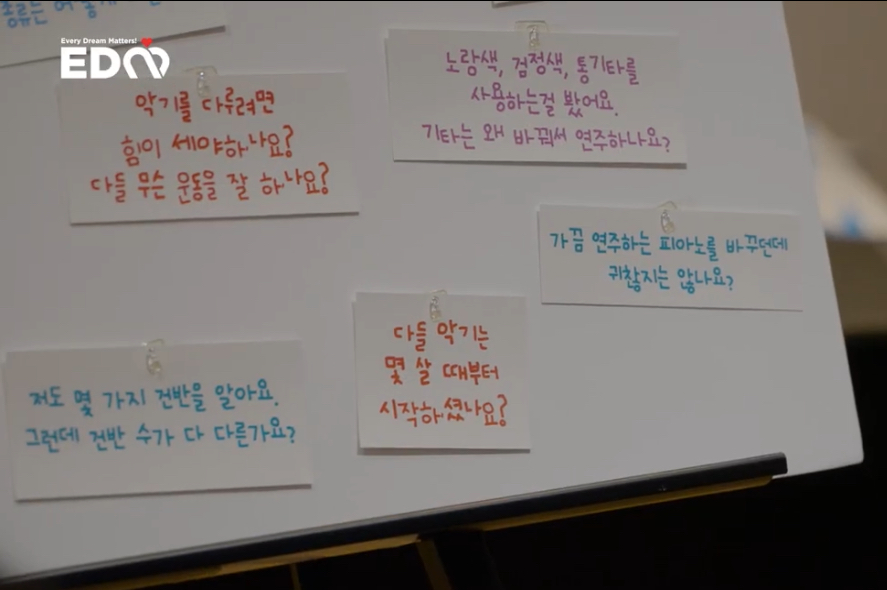 Every Dream Matters!
EDM
악기를 다루려면
힘이 세야하나요?
다들 무슨 운동을 잘 하나요?
노랑색, 검정색, 통기타를
사용하는걸 봤어요.
기타는 왜 바꿔서 연주하나요?
가끔 연주하는 피아노를 바꾸던데
귀찮지는 않나요?
다들 악기는
몇 살 때부터
시작하셨나요?
저도 몇 가지 건반을 알아요.
그런데 건반 수가 다 다른가요?